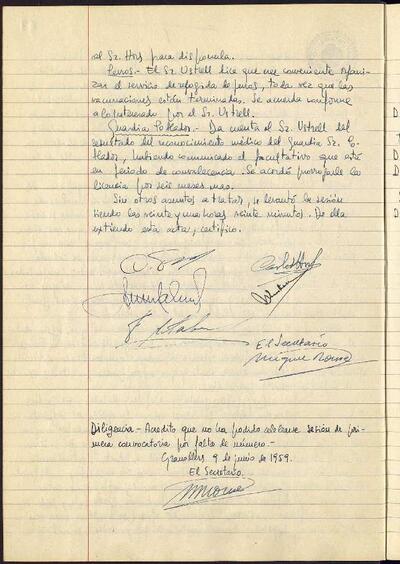 al Sr. Hors para disponerla.
Perros.- El Sr. Ustrell dice que cree conveniente organi-
zar el servicio de recogida de perros, toda vez que las
vacunaciones están terminadas. Se acuerda conforme
a lo interesado por el Sr. Ustrell.
Guardia Collados.- Da cuenta el Sr. Ustrell del
resultado del reconocimiento médico del Guardia Sr. Co-
llados, habiendo comunicado el facultativo que está
en período de convalecencia. Se acordó prorrogarle la
licencia por seis meses mas.
Sin otros asuntos a tratar, se levantó la sesión
siendo las veinte y una horas veinte minutos. De ella
extiendo esta acta, certifico.
El Secretario
Diligencia.- Acredito que no ha podido celebrarse sesión de pri-
mera convocatoria por falta de número.-
Granollers 9 de junio de 1959.
El Secretario.